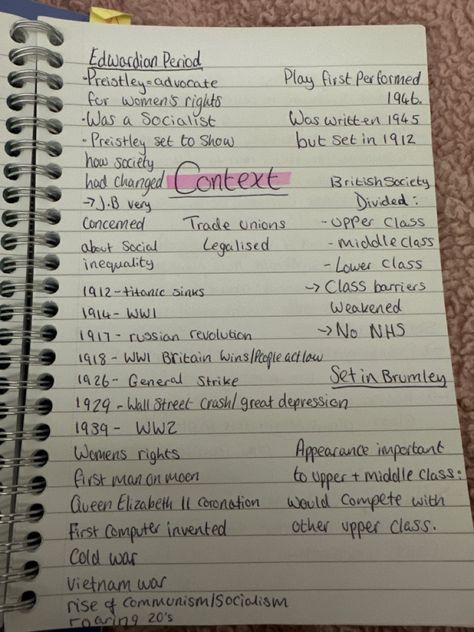 Edwardian Period
·Preistley=advocate
for women's rights
·Was a Socialist
·Preistley set to show
how society
had changed
→J.B very
concerned
about social
inequality
Play first performed
1946.
Was written 1945
but set in 1912
Context
Trade unions
Legalised
British Society
Divided:
-upper class
-middle class
-Lower class
→Class barriers
weakened
→No NHS
1912-titanic sinks
1914- WW1
1917- russian revolution
1918- WW1 Britain wins/People act law
1926- General Strike
1929-Wall Street crash/great depression
1939- WW2
Set in Brumley
Womens rights
first man on moon
Queen Elizabeth II coronation
First computer invented
Cold war
Vietnam war
rise of communism/socialism
roaring 20's
Appearance important
to upper + middle class:
would compete with
other upper class.